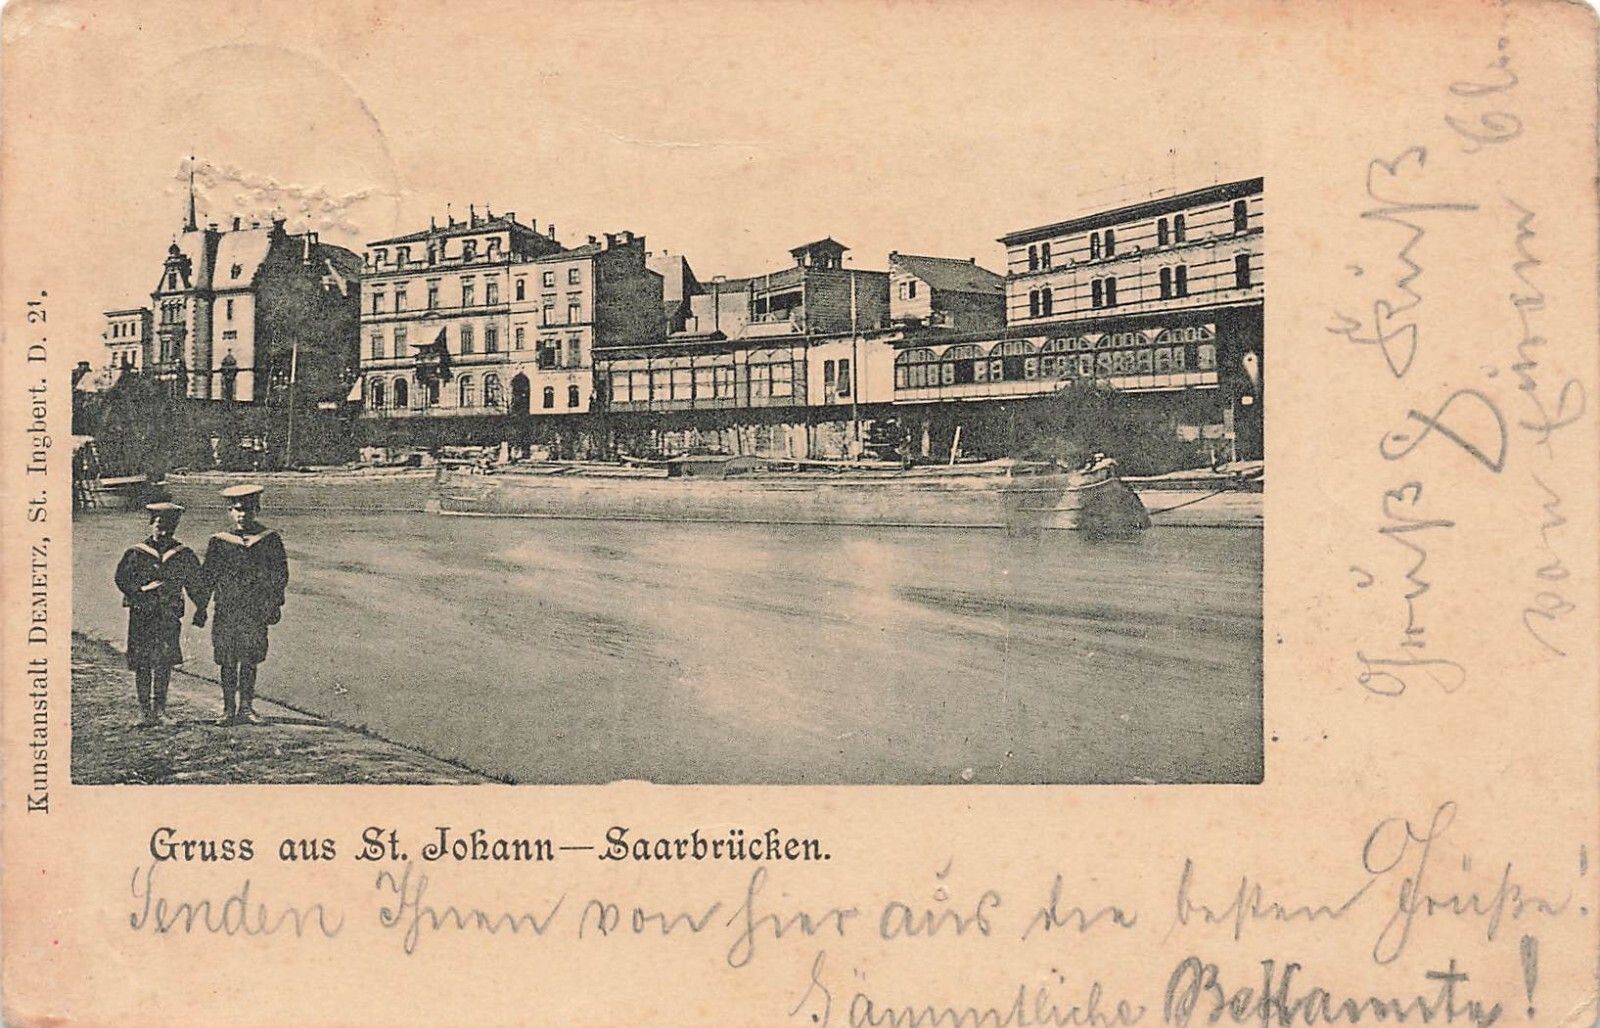 Kunstanstalt DEMETZ, St. Ingbert. D. 21.
Gruss aus St. Johann—Saarbrücken.
Senden Ihnen von hier aus die besten Grüße!
Sämmtliche Bekannte!
Gruß &
Kuß
vom